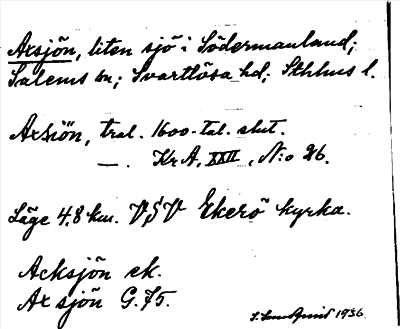 Axsjön, liten sjö i Södermanland;
Salems sn; Svartlösa hd; Sthlms l.
Axsiön, tral. 1600-tal. slut.
— . Kr A, XXII, N:o 26.
Läge 4.8 km. VSV Ekerö kyrka.
Acksjön ek.
Axsjön G.75.
1936.